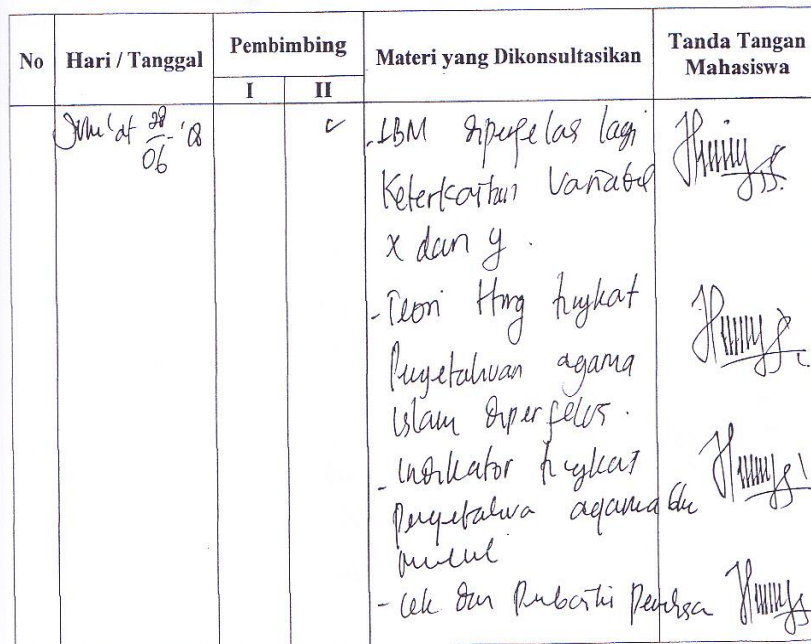 No Hari / Tanggal Pembimbing Materi yang Dikonsultasikan Tanda Tangan Mahasiswa
I II
Jum'at 28/06-'18
- LBM diperjelas lagi
Keterkaitan Variabel
x dan y.
- Teori ttng tingkat
Pengetahuan agama
islam diperjelas.
- Indikator tingkat
Pengetahua agama
- Cek dan